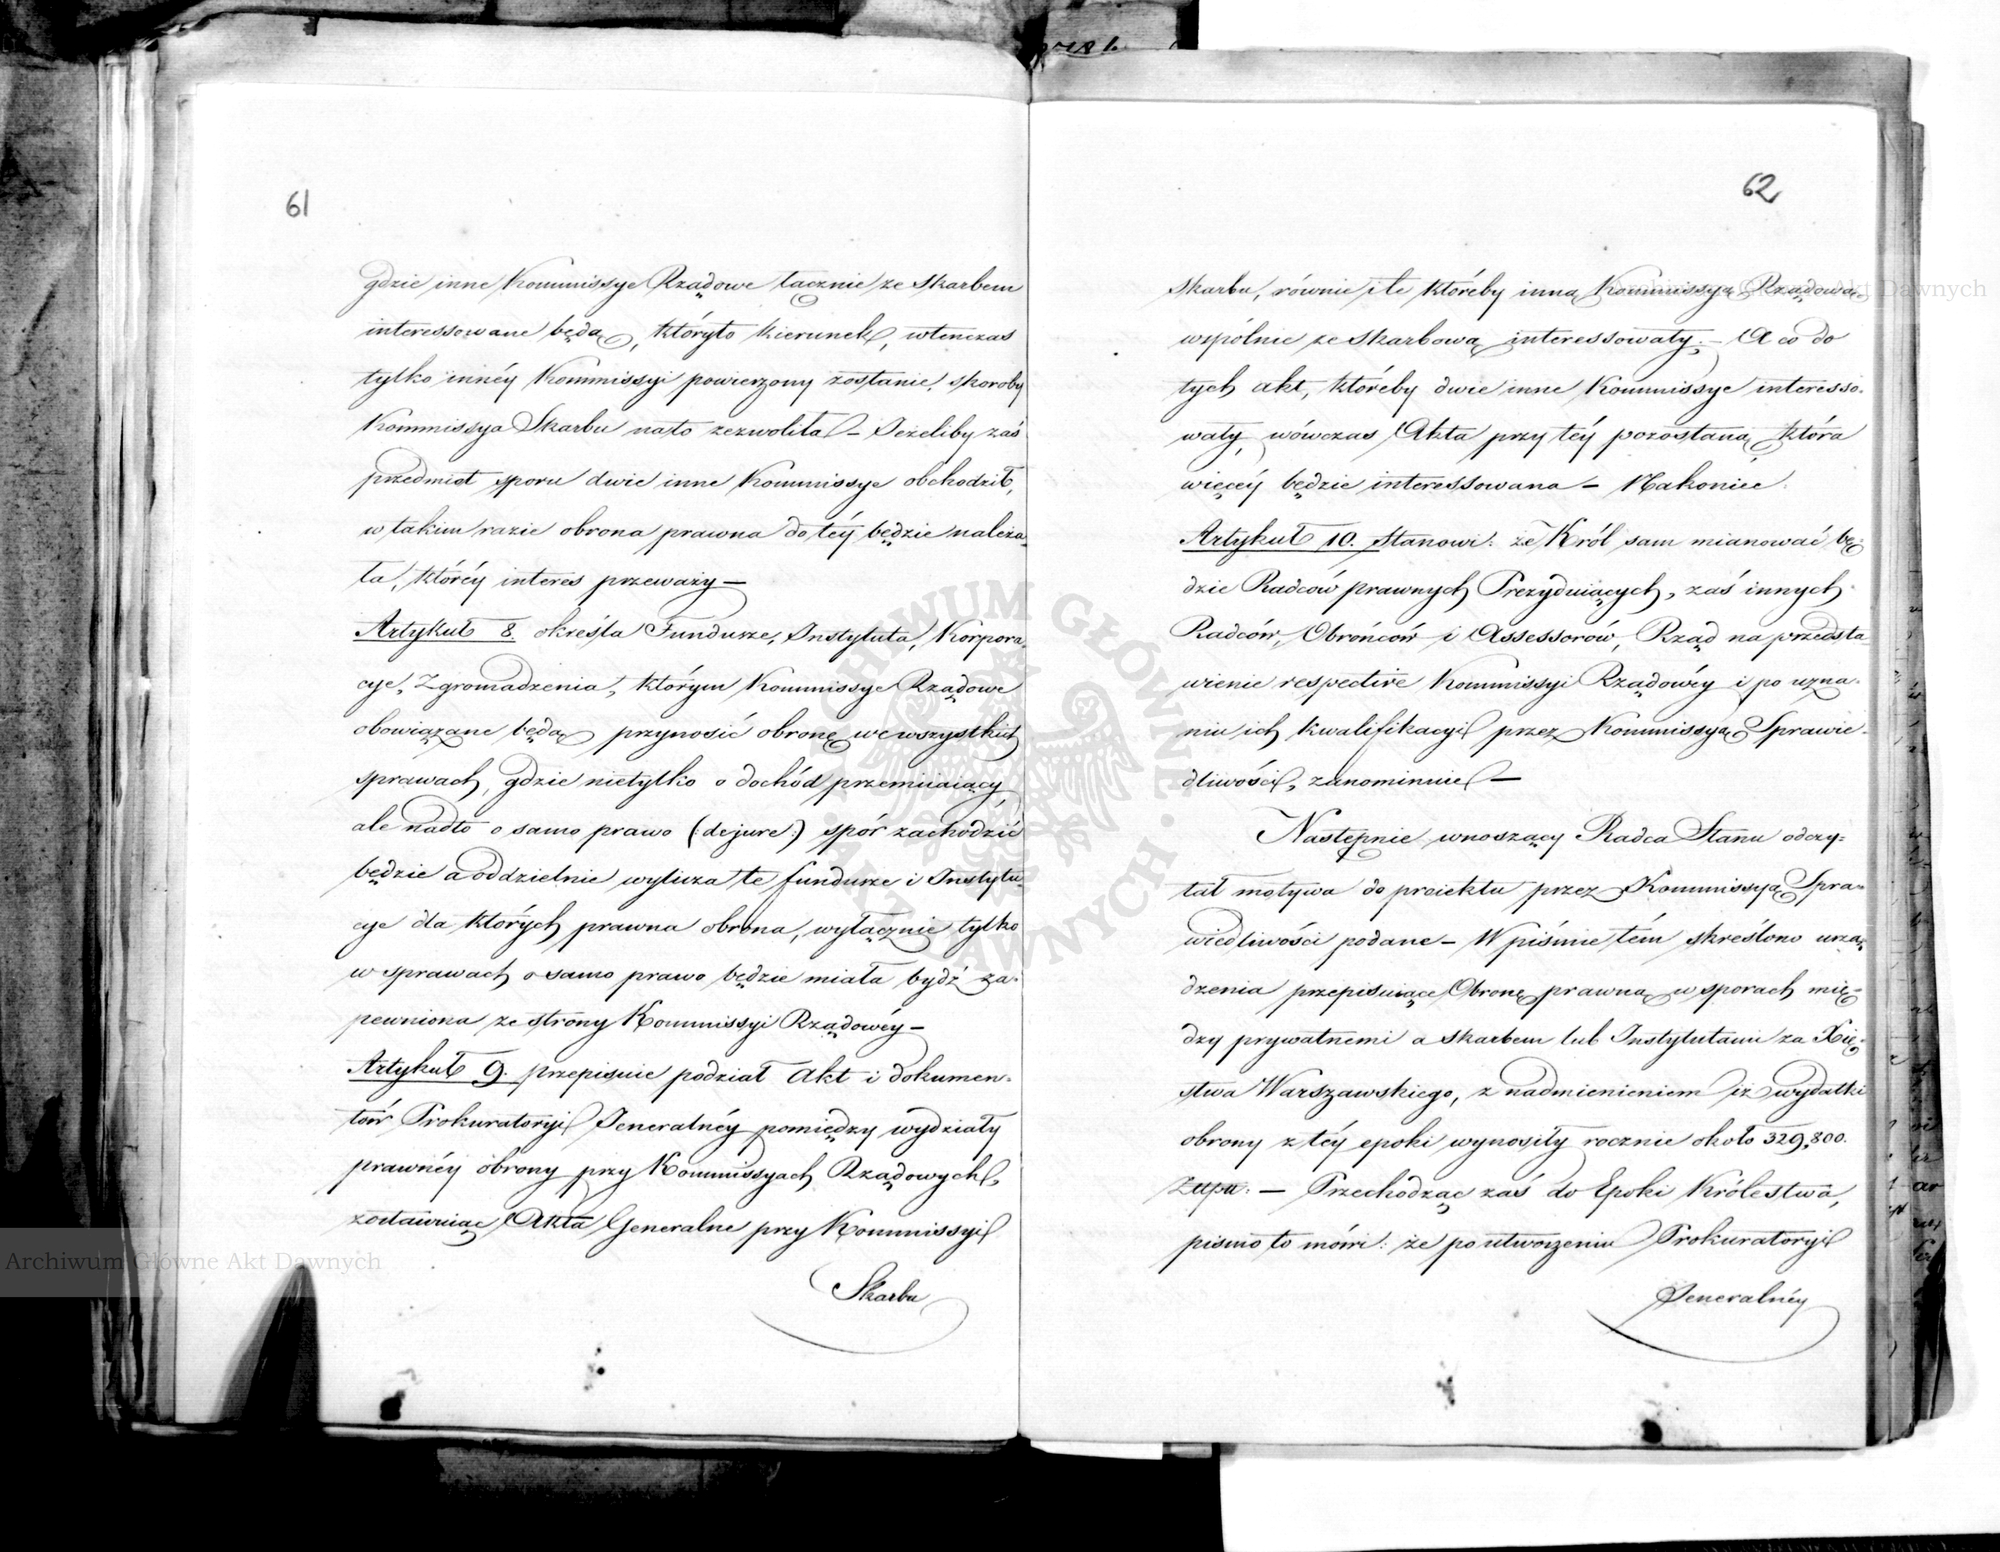 61
gdzie inne Kommissye Rządowe łącznie ze Skarbem
interessowane będą, któryto kierunek, wtenczas
tylko innéy Kommissyi powierzony zostanie, skoroby
Kommissya Skarbu na to zezwoliła – Jeżeliby zaś
przedmiot sporu dwie inne Kommissye obchodził,
w takim razie obrona prawna do téy będzie należa-
ła, któréy interes przeważy –
Artykuł 8. określa Fundusze, Instytuta, Korpora-
cye, Zgromadzenia, którym Kommissye Rządowe
obowiązane będą przynosić obronę we wszystkich
sprawach, gdzie nietylko o dochód przemiiaiący
ale nadto o samo prawo (: de jure :) spór zachodzić
będzie a oddzielnie wylicza te fundusze i Instytu-
cye dla których prawna obrona, wyłącznie tylko
w sprawach o samo prawo będzie miała bydź za-
pewniona ze strony Kommissyi Rządowéy –
Artykuł 9. przepisuie podział Akt i dokumen-
tów Prokuratoryi Jeneralnéy pomiędzy wydziały
prawnéy obrony przy Kommissyach Rządowych,
zostawuiąc Akta Generalne przy Kommissyi
Skarbu
62
Skarbu, równie i te któreby inną Kommissyą Rządową
wspólnie ze Skarbową interessowały. – A co do
tych akt, któreby dwie inne Kommissye interesso-
wały, wówczas Akta przy téy pozostaną która
więcéy będzie interessowana – Nakoniec
Artykuł 10. stanowi: że Król sam mianować bę-
dzie Radców prawnych Prezyduiących, zaś innych
Radców, Obrońców i Assessorów, Rząd na przedsta-
wienie respective Kommissyi Rządowéy i po uzna-
niu ich kwalifikacyi przez Kommissyą Sprawie-
dliwości, zanominuie –
Następnie wnoszący Radca Stanu odczy-
tał motywa do proiektu przez Kommissyą Spra-
wiedliwości podane – W piśmie tém skreślono urzą-
dzenia przepisuiące Obronę prawną w sporach mię-
dzy prywatnemi a Skarbem lub Instytutami za Xię-
stwa Warszawskiego, z nadmienieniem iż wydatki
obrony z téy epoki wynosiły rocznie około 329,800.
Złpu. – Przechodząc zaś do Epoki Królestwa,
pismo to mówi: że po utworzeniu Prokuratoryi
Jeneralnéy
Archiwum Główne Akt Dawnych
Archiwum Główne Akt Dawnych
ARCHIWUM GŁÓWNE AKT DAWNYCH